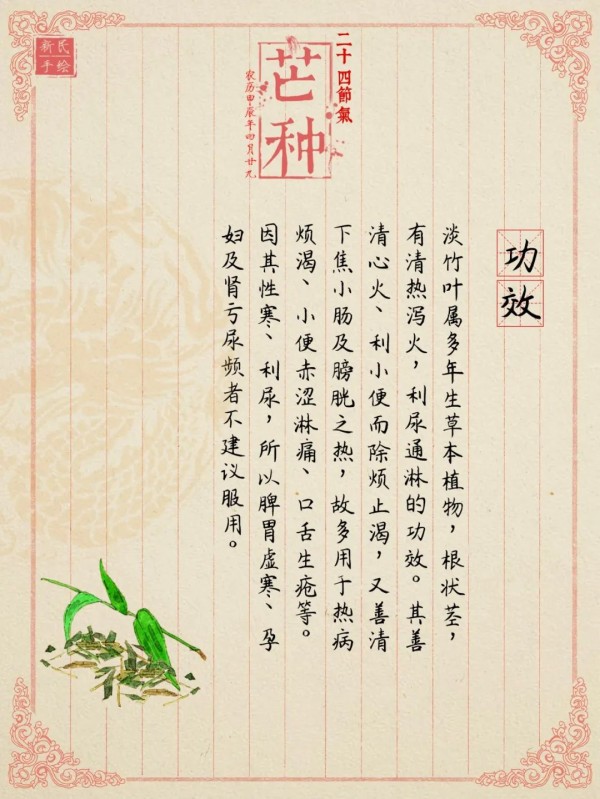 新氏
手绘
二十四節氣
芒种
农历甲辰年四月廿九
功效
淡竹叶属多年生草本植物，根状茎，
有清热泻火，利尿通淋的功效。其善
清心火、利小便而除烦止渴，又善清
下焦小肠及膀胱之热，故多用于热病
烦渴、小便赤涩淋痛、口舌生疮等。
因其性寒、利尿，所以脾胃虚寒、孕
妇及肾亏尿频者不建议服用。